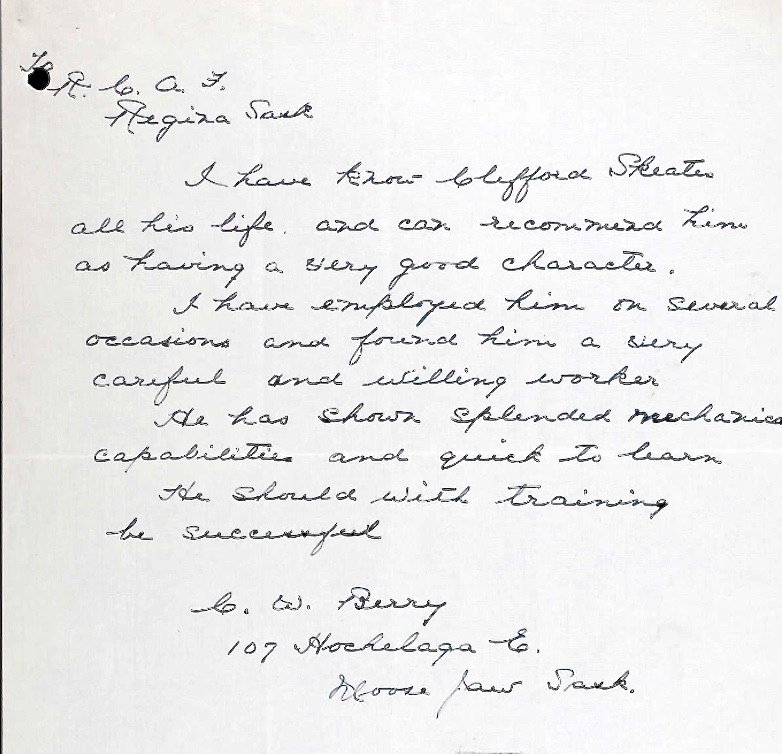 To
R. C. A. F.
Regina Sask
I have know Clifford Skeates
all his life. and can recommend him
as having a very good character.
I have employed him on several
occasions and found him a very
careful and willing worker
He has shown splended mechanica
capabilities and quick to learn
He should with training
be successful
C. W. Berry
107 Hochelaga E.
Moose Jaw Sask.